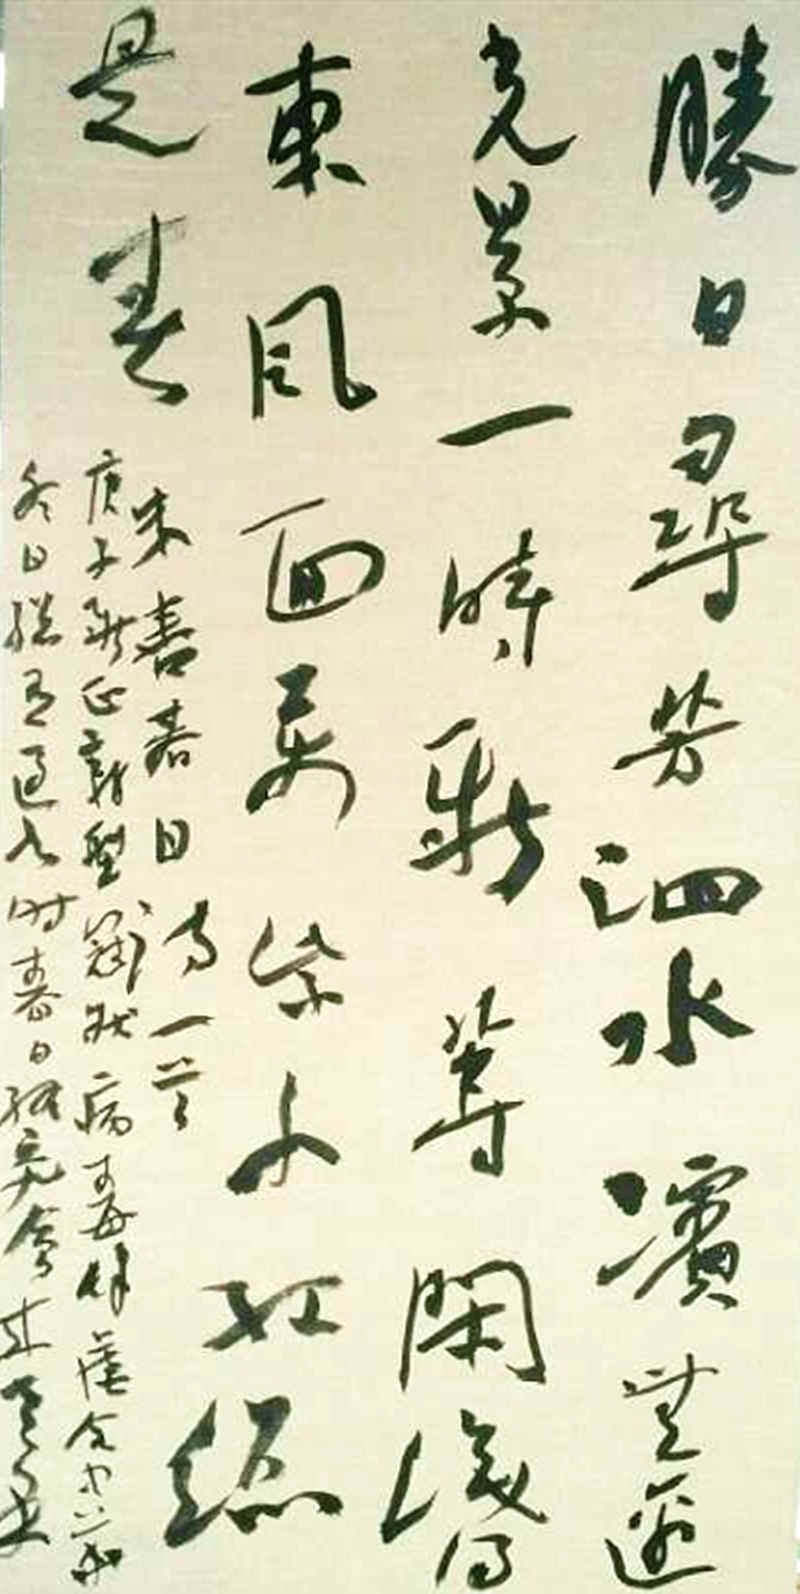 勝日尋芳泗水濱無邊
光景一時新等閑識得
東風面萬紫千紅總
是春
朱熹春日诗一首
庚子新正新型冠狀病毒肆虐
冬日終有過去时春日